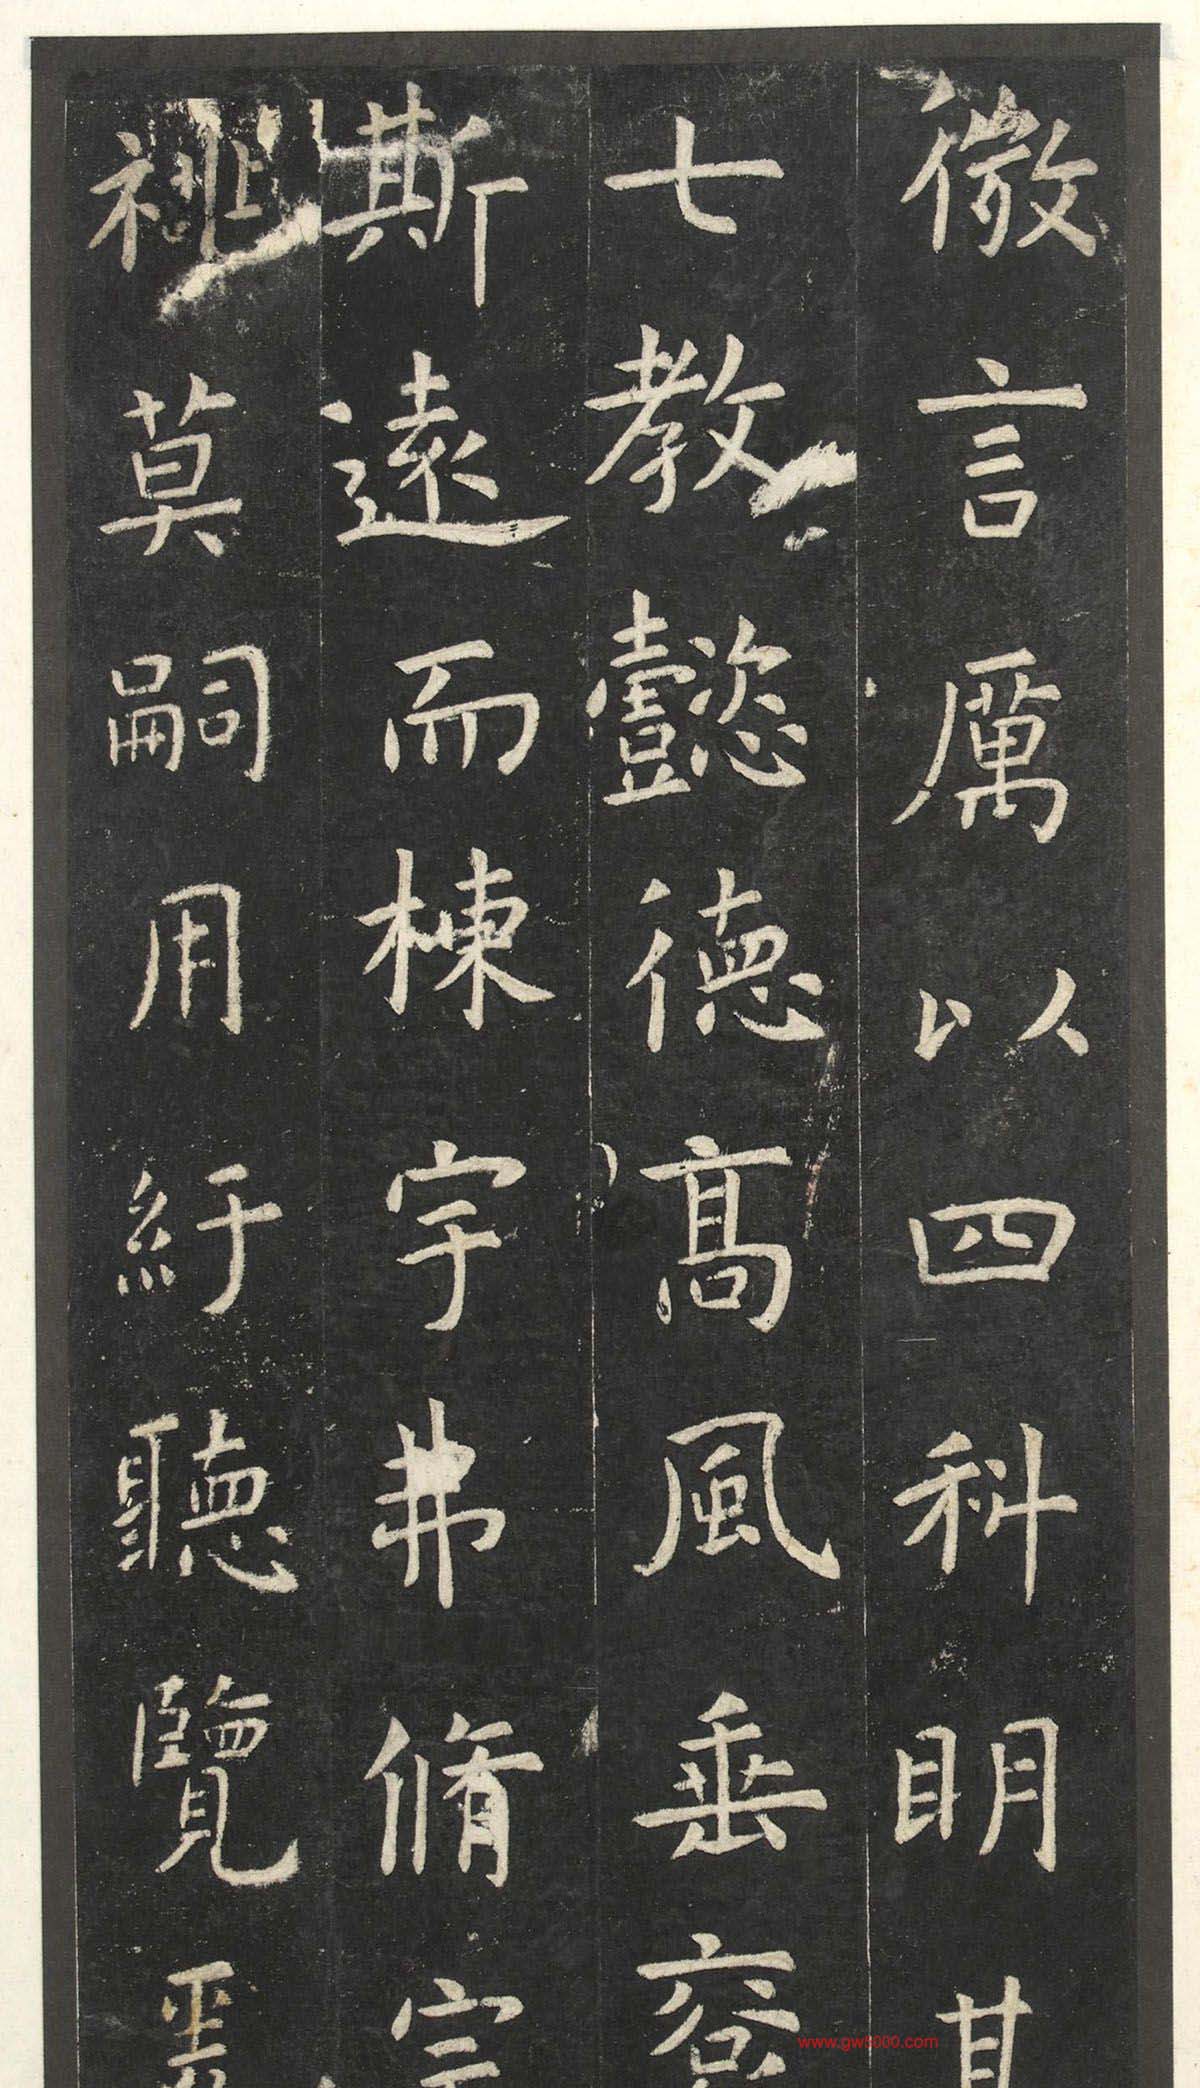 微言厲以四科明其
七教懿德高風垂裕
斯遠而棟宇弗脩宗
祧莫嗣用紆聽覽
www.gw5000.com